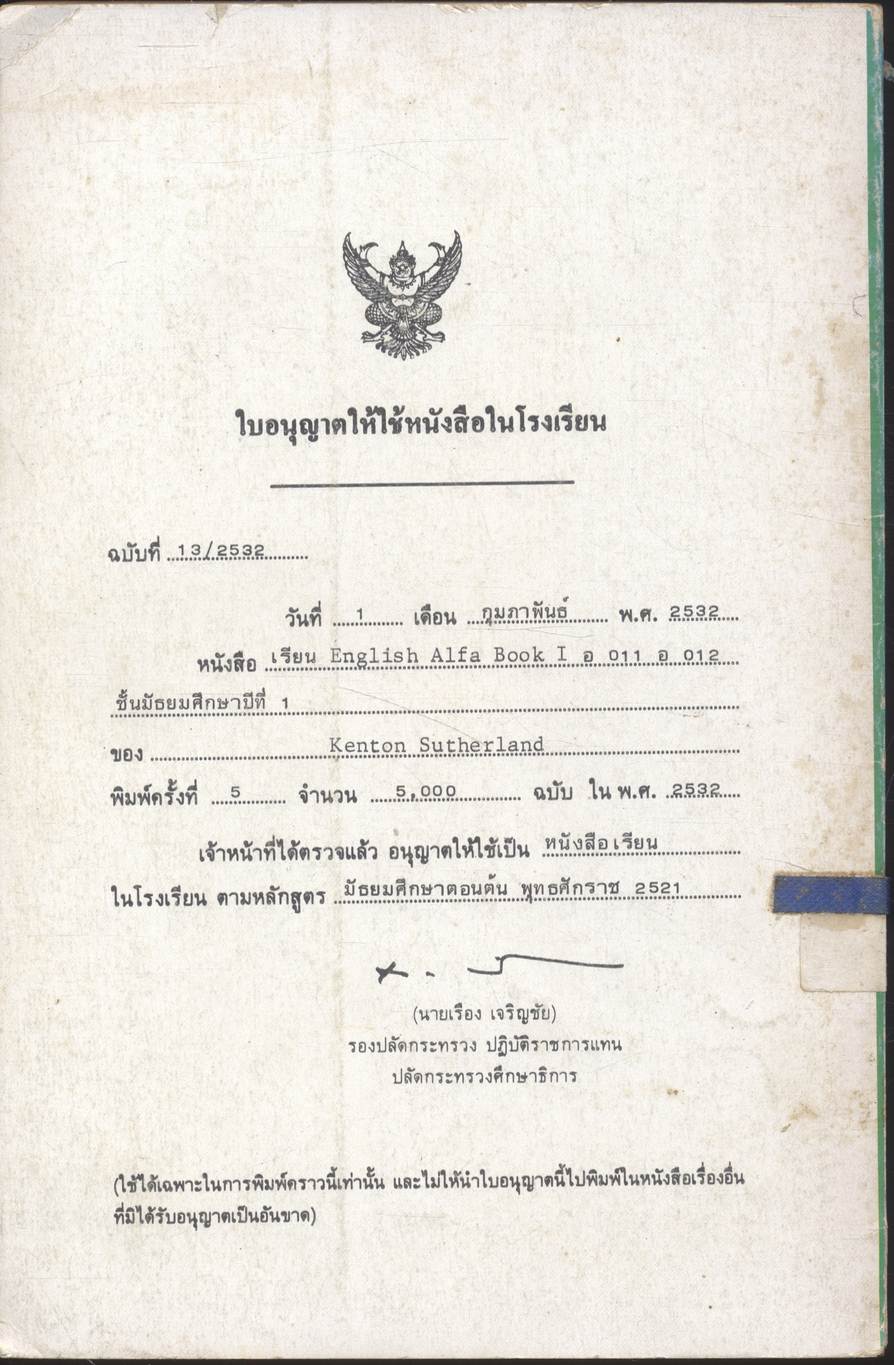 ใบอนุญาตให้ใช้หนังสือในโรงเรียน
ฉบับที่ 13/2532
วันที่ 1 เดือน กุมภาพันธ์ พ.ศ. 2532
หนังสือ เรียน English Alfa Book I อ 011 อ 012
ชั้นมัธยมศึกษาปีที่ 1
ของ Kenton Sutherland
พิมพ์ครั้งที่ 5 จำนวน 5,000 ฉบับ ใน พ.ศ. 2532
เจ้าหน้าที่ได้ตรวจแล้ว อนุญาตให้ใช้เป็น หนังสือเรียน
ในโรงเรียน ตามหลักสูตร มัธยมศึกษาตอนต้น พุทธศักราช 2521
(นายเรือง เจริญชัย)
รองปลัดกระทรวง ปฏิบัติราชการแทน
ปลัดกระทรวงศึกษาธิการ
(ใช้ได้เฉพาะในการพิมพ์คราวนี้เท่านั้น และไม่ให้นำใบอนุญาตนี้ไปพิมพ์ในหนังสือเรื่องอื่น
ที่มิได้รับอนุญาตเป็นอันขาด)